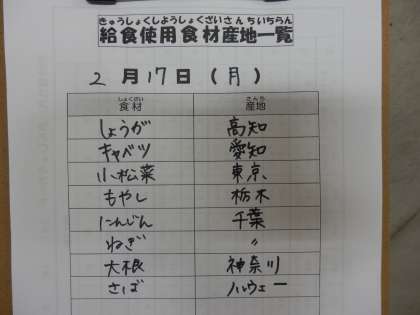 きゅうしょくしようしょくざいさんちいちらん
給食使用食材産地一覧
2月17日(月)
しょくざい さんち
食材 産地
しょうが 高知
キャベツ 愛知
小松菜 東京
もやし 栃木
にんじん 千葉
ねぎ 〃
大根 神奈川
さば ノルウェー